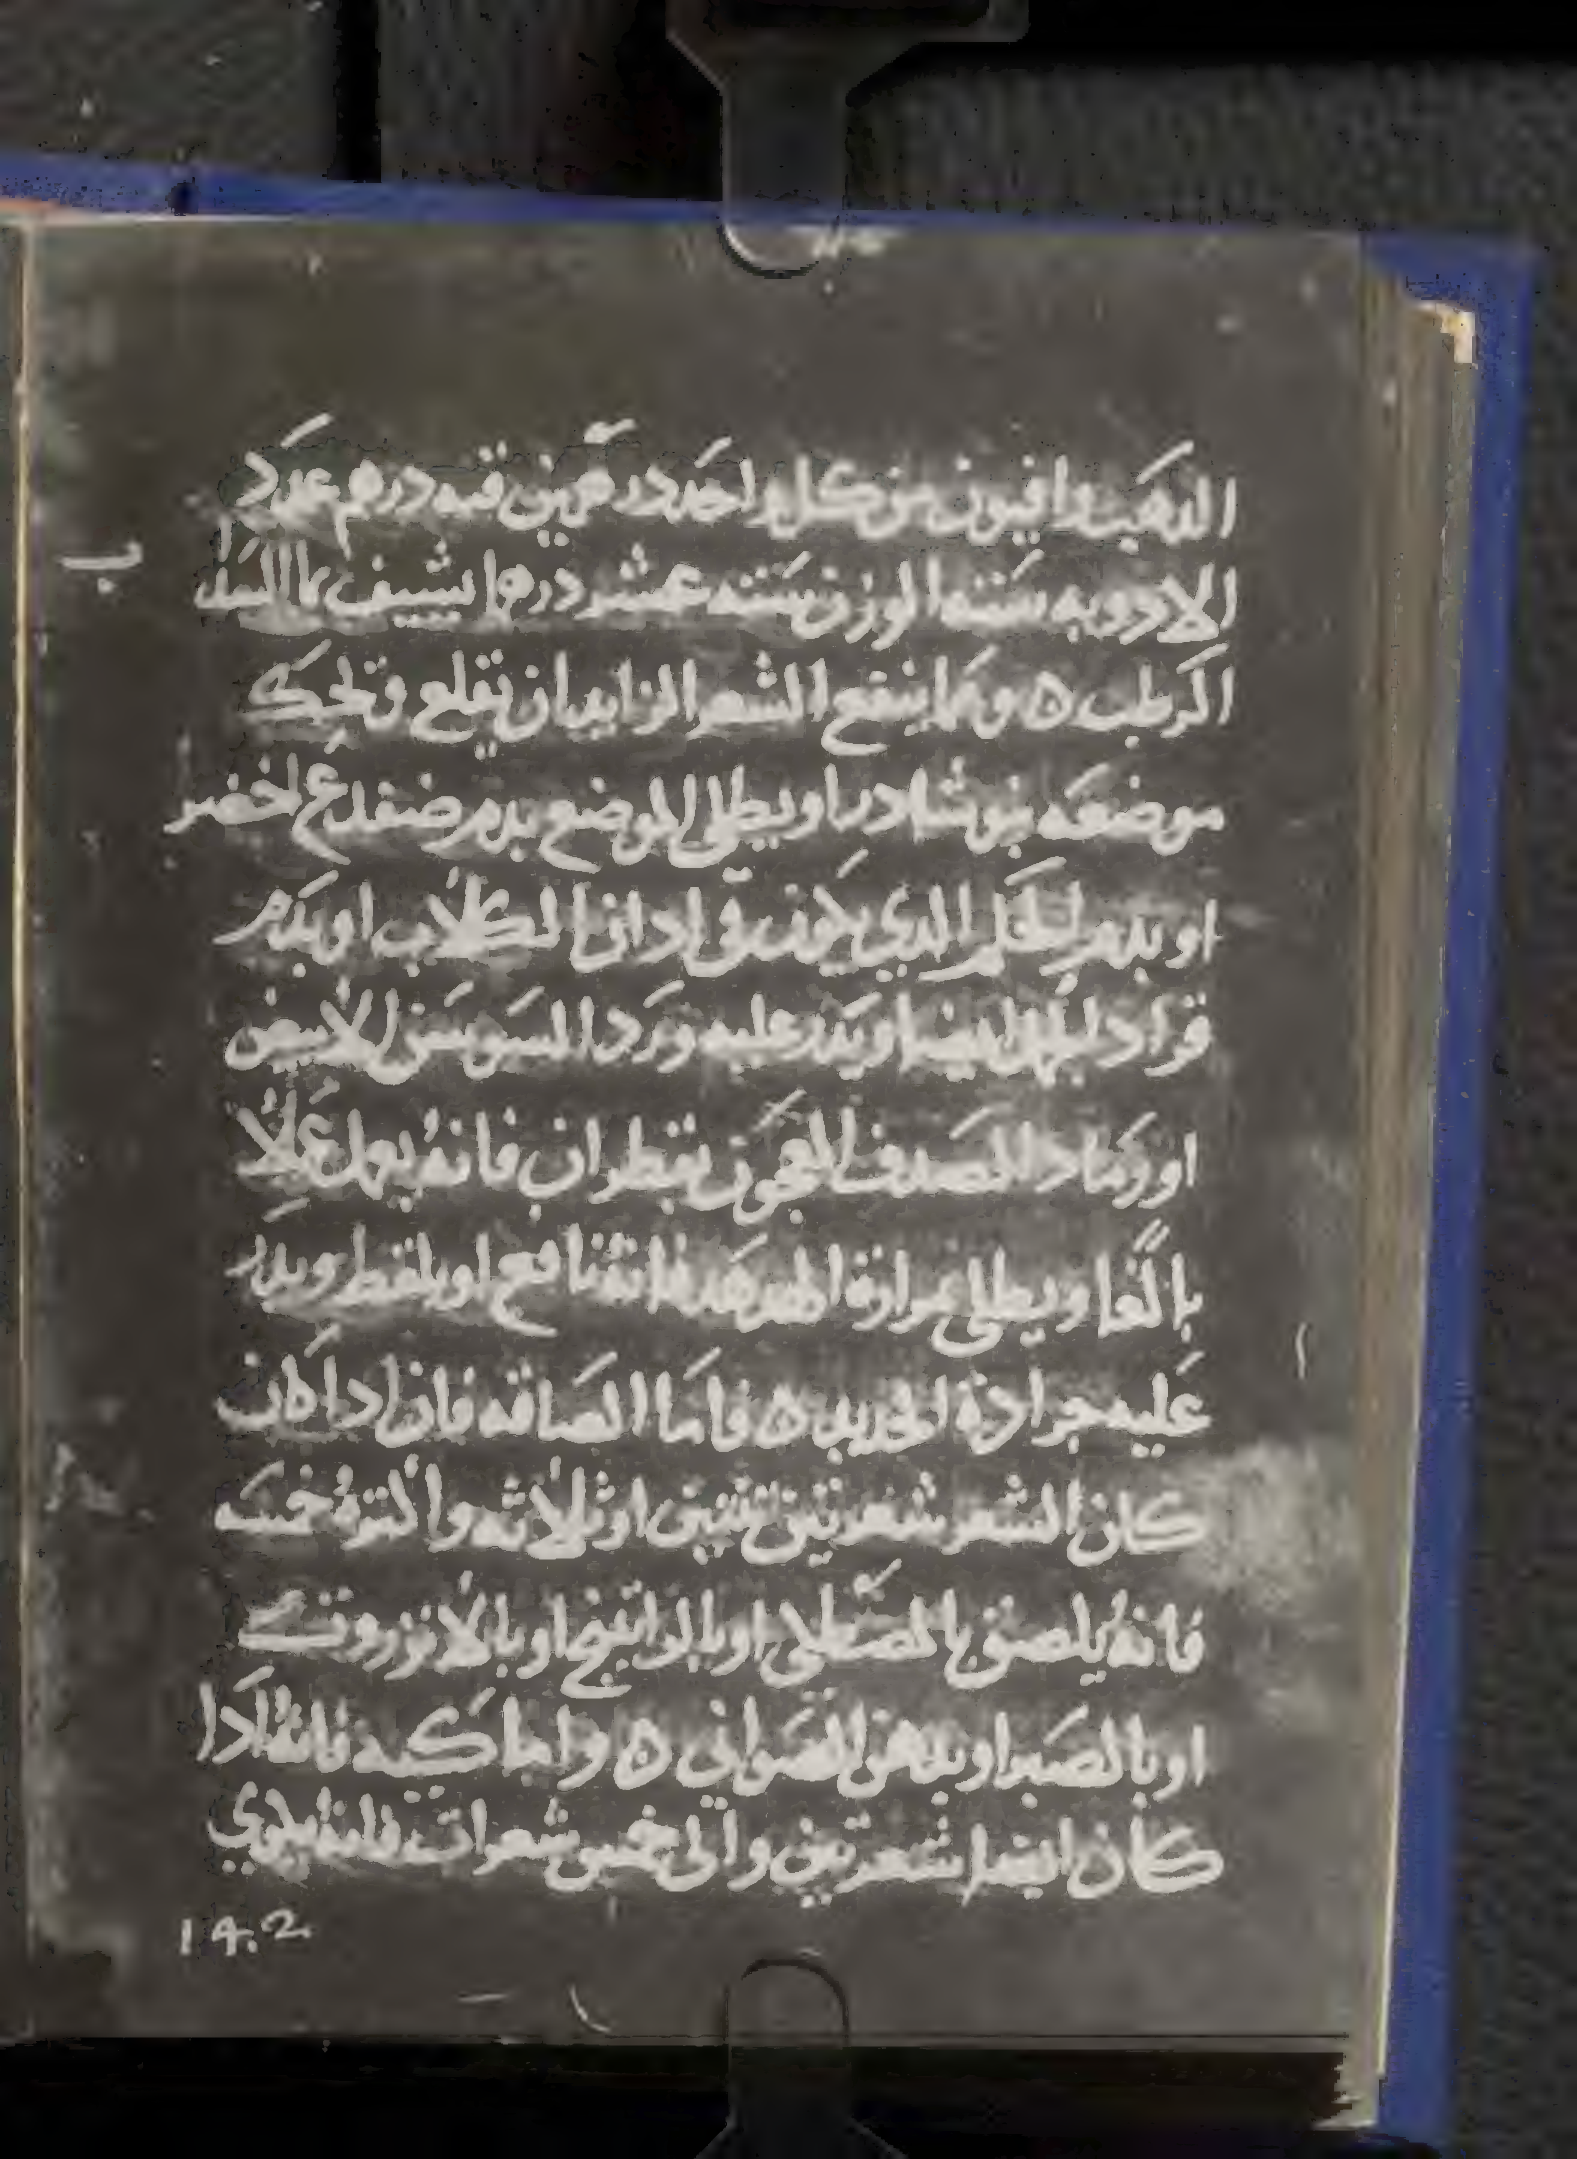 الدهب وافيون من كل واحد درهمين قنه درهم عدد
الادويه سته الوزن سته عشر درهما يشيف بما السداب
ب
الرطب ه ومما ينفع الشعر الزايد ان يقلع ويحك
موضعه بنوشادر او يطلي الموضع بدم ضفدع اخضر
او بدم الحلم الدي يكون في ادان الكلاب او بدم
قراد او يدر عليه ورد السوسن الابيض
او رماد الصدف المعجون بقطران فانه يعمل عملا
بالغا ويطلي بمرارة الهدهد فانه نافع او يلقط ويدر
عليه برادة الحديد ه فاما الصاقه فان ادا كان
كان الشعر شعرتين تنتين او ثلاثه واكتره خمسه
فانه يلصق بالمصطكي او بالراتينج او بالانزروت
او بالصبر او بدهن الصواني ه واما كيه فانه ادا
كان ايضا شعرتين والي خمس شعرات فانه يكوي
142